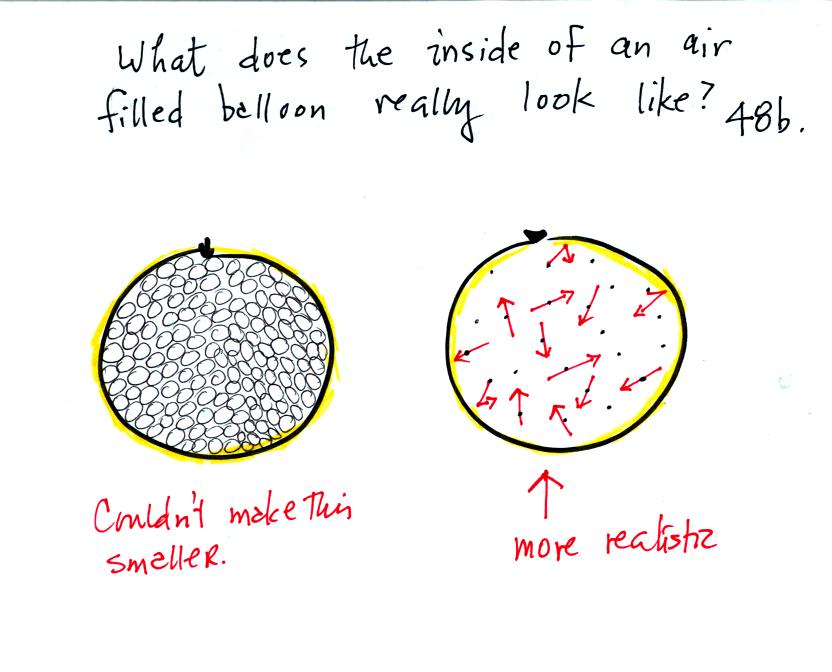 What does the inside of an air
filled balloon really look like? 48b.
Couldn't make this
smaller.
more realistic